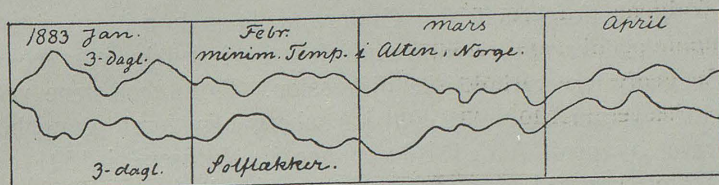 1883 Jan. Febr. mars April
3-dagl. minim. Temp. i Alten, Norge.
3-dagl. Solflækker.